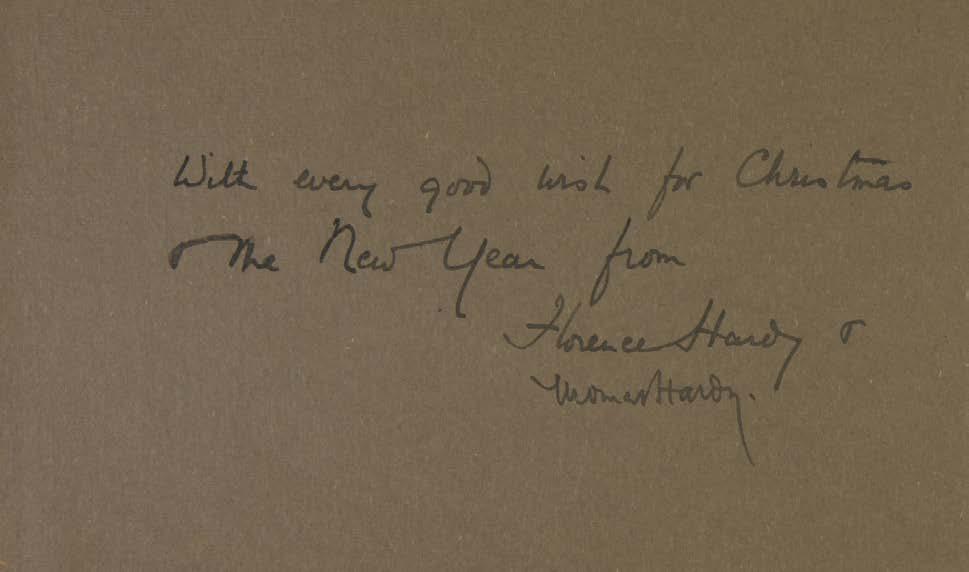 With every good wish for Christmas
& the New Year from
Florence Hardy &
Thomas Hardy.